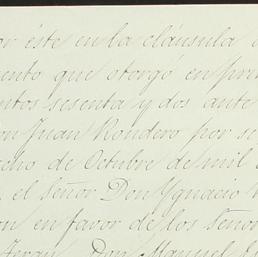 or éste en la cláusula
ento que otorgó en pri
ntos sesenta y dos ante
on Juan Rondero por se
cho de Octubre de mil
el señor Don Ygnacio
on en favor de los señor
Don Manuel